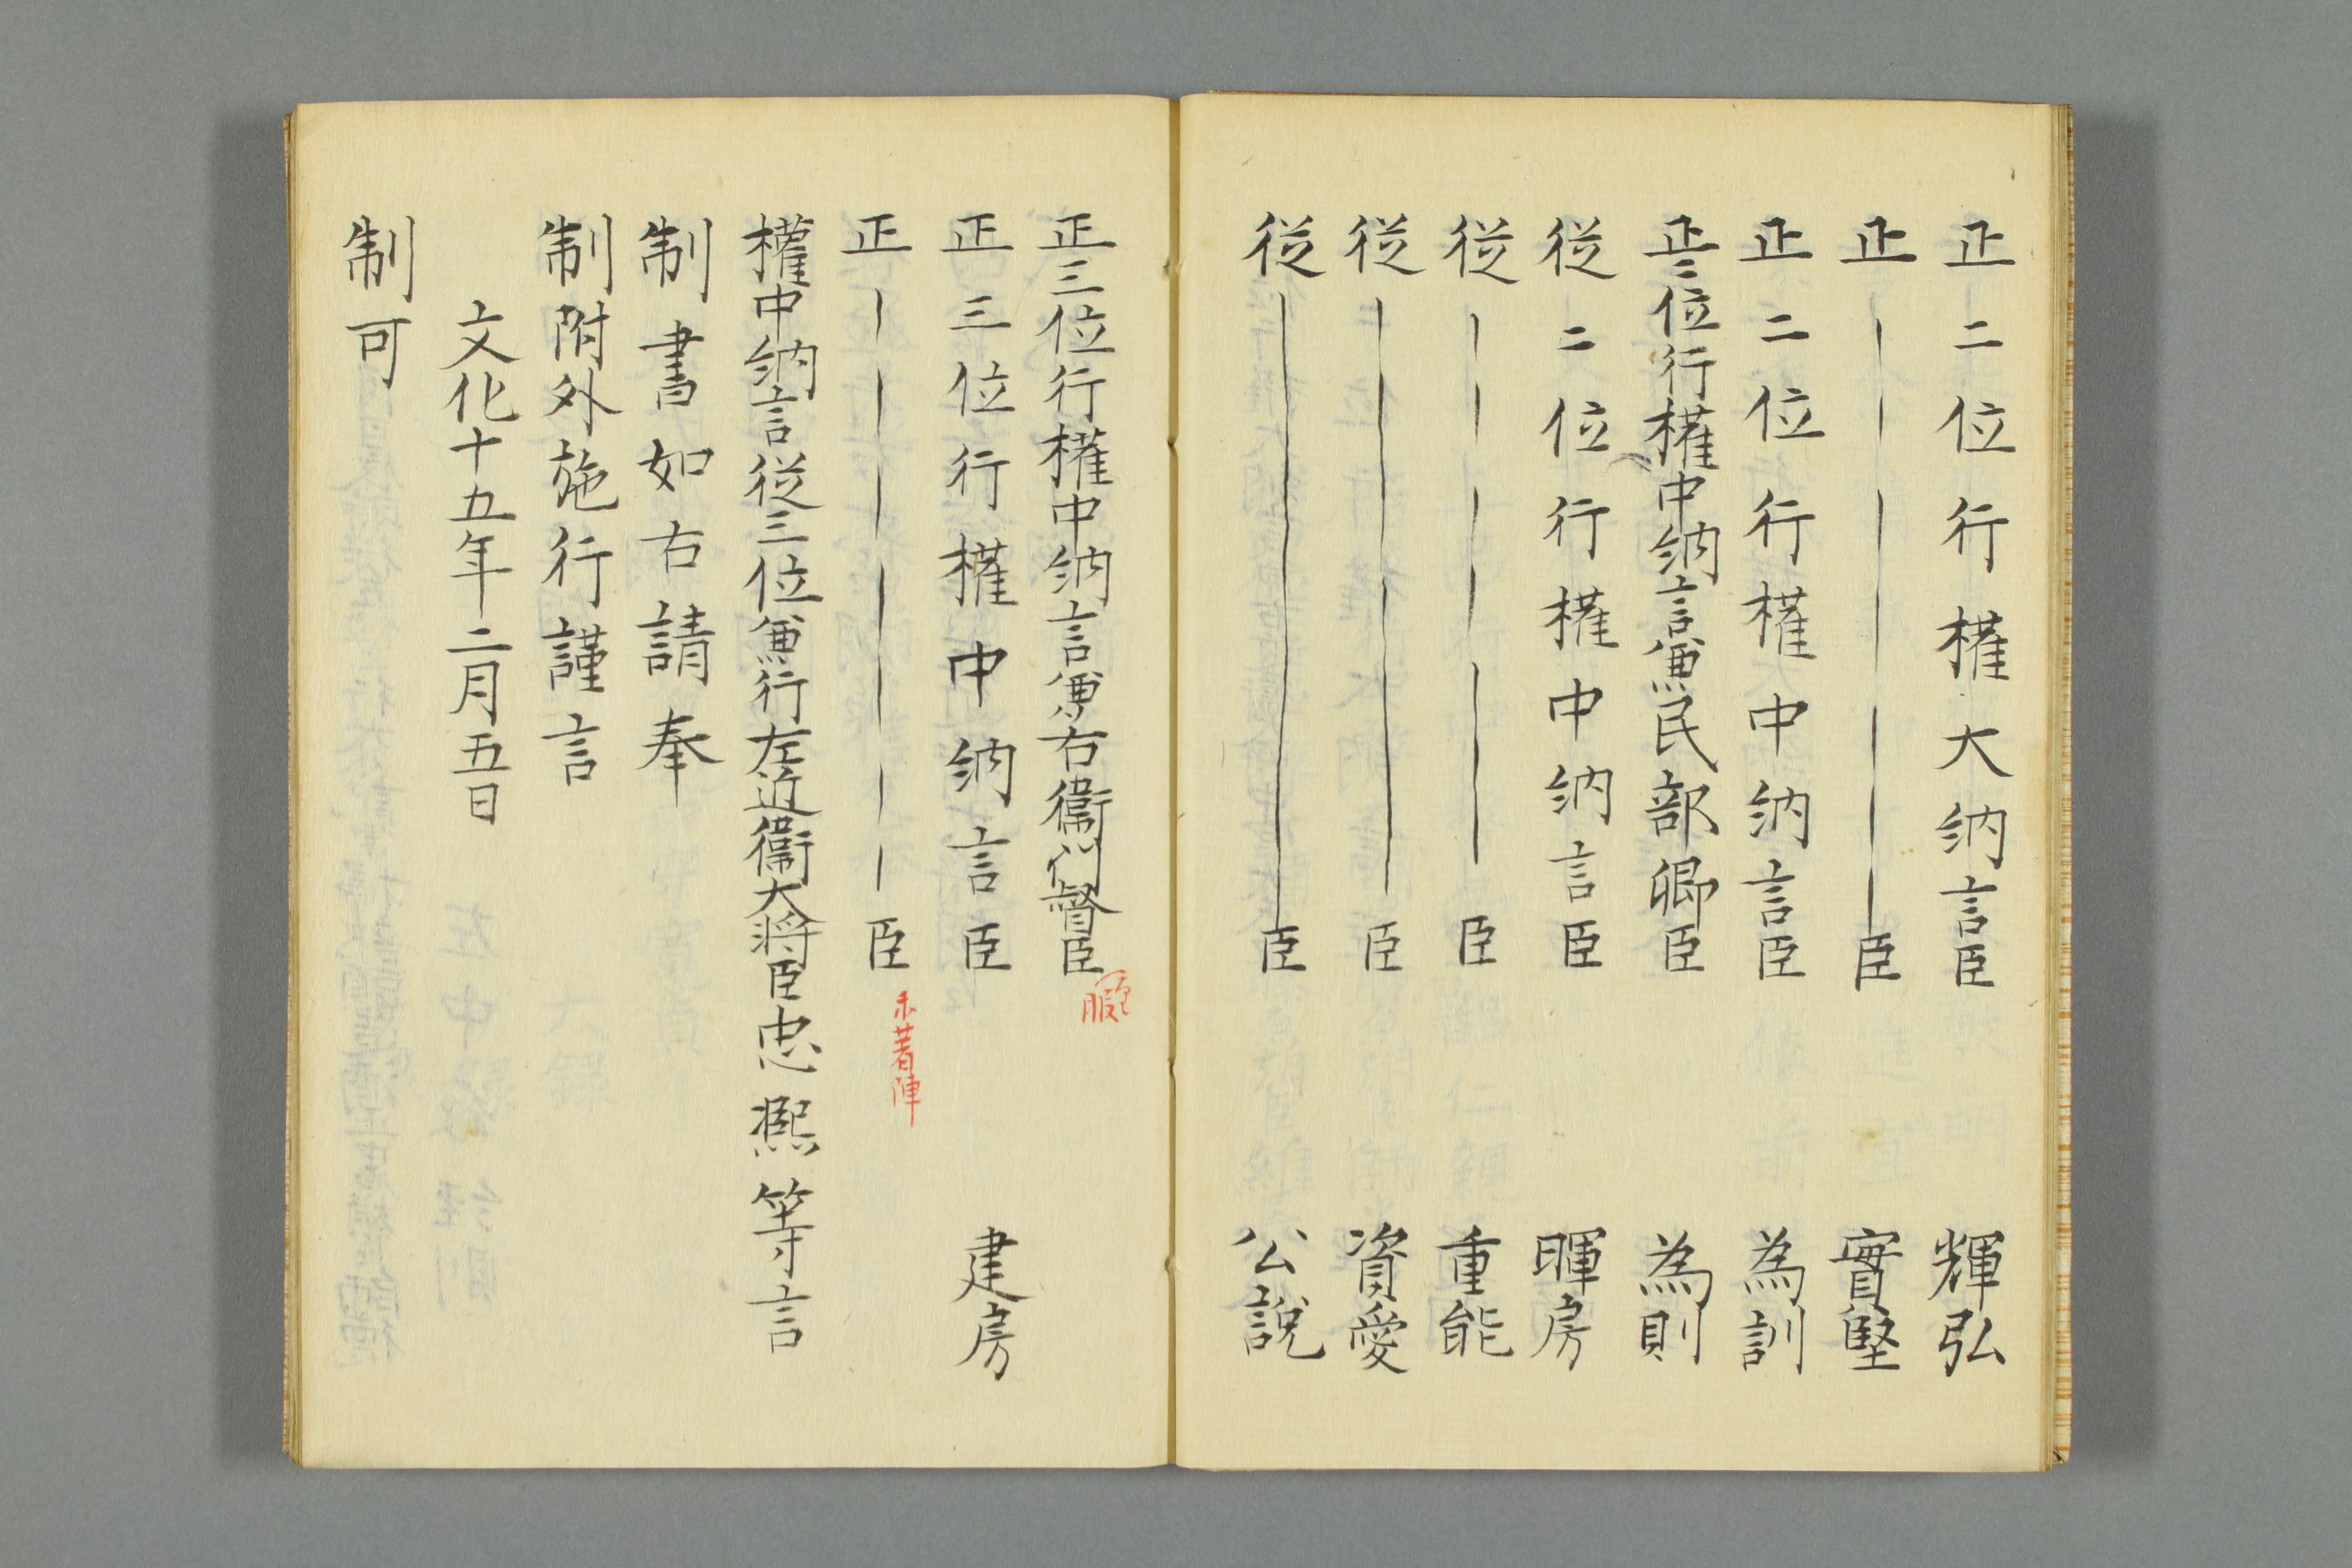 正二位行權大納言臣 輝弘
正｜｜｜｜｜｜臣 實堅
正二位行權中納言臣 為訓
正二位行權中納言兼民部卿臣 為則
従二位行權中納言臣 暉房
従｜｜｜｜｜臣 重能
従｜｜｜｜臣 資愛
従｜臣 公說
正三位行權中納言兼右衛門督臣
正三位行權中納言臣 建房
正｜｜｜｜｜｜｜臣 未著陣
權中納言従三位兼行左近衛大将臣忠熙等言
制書如右請奉
制附外施行謹言
文化十五年二月五日
制可